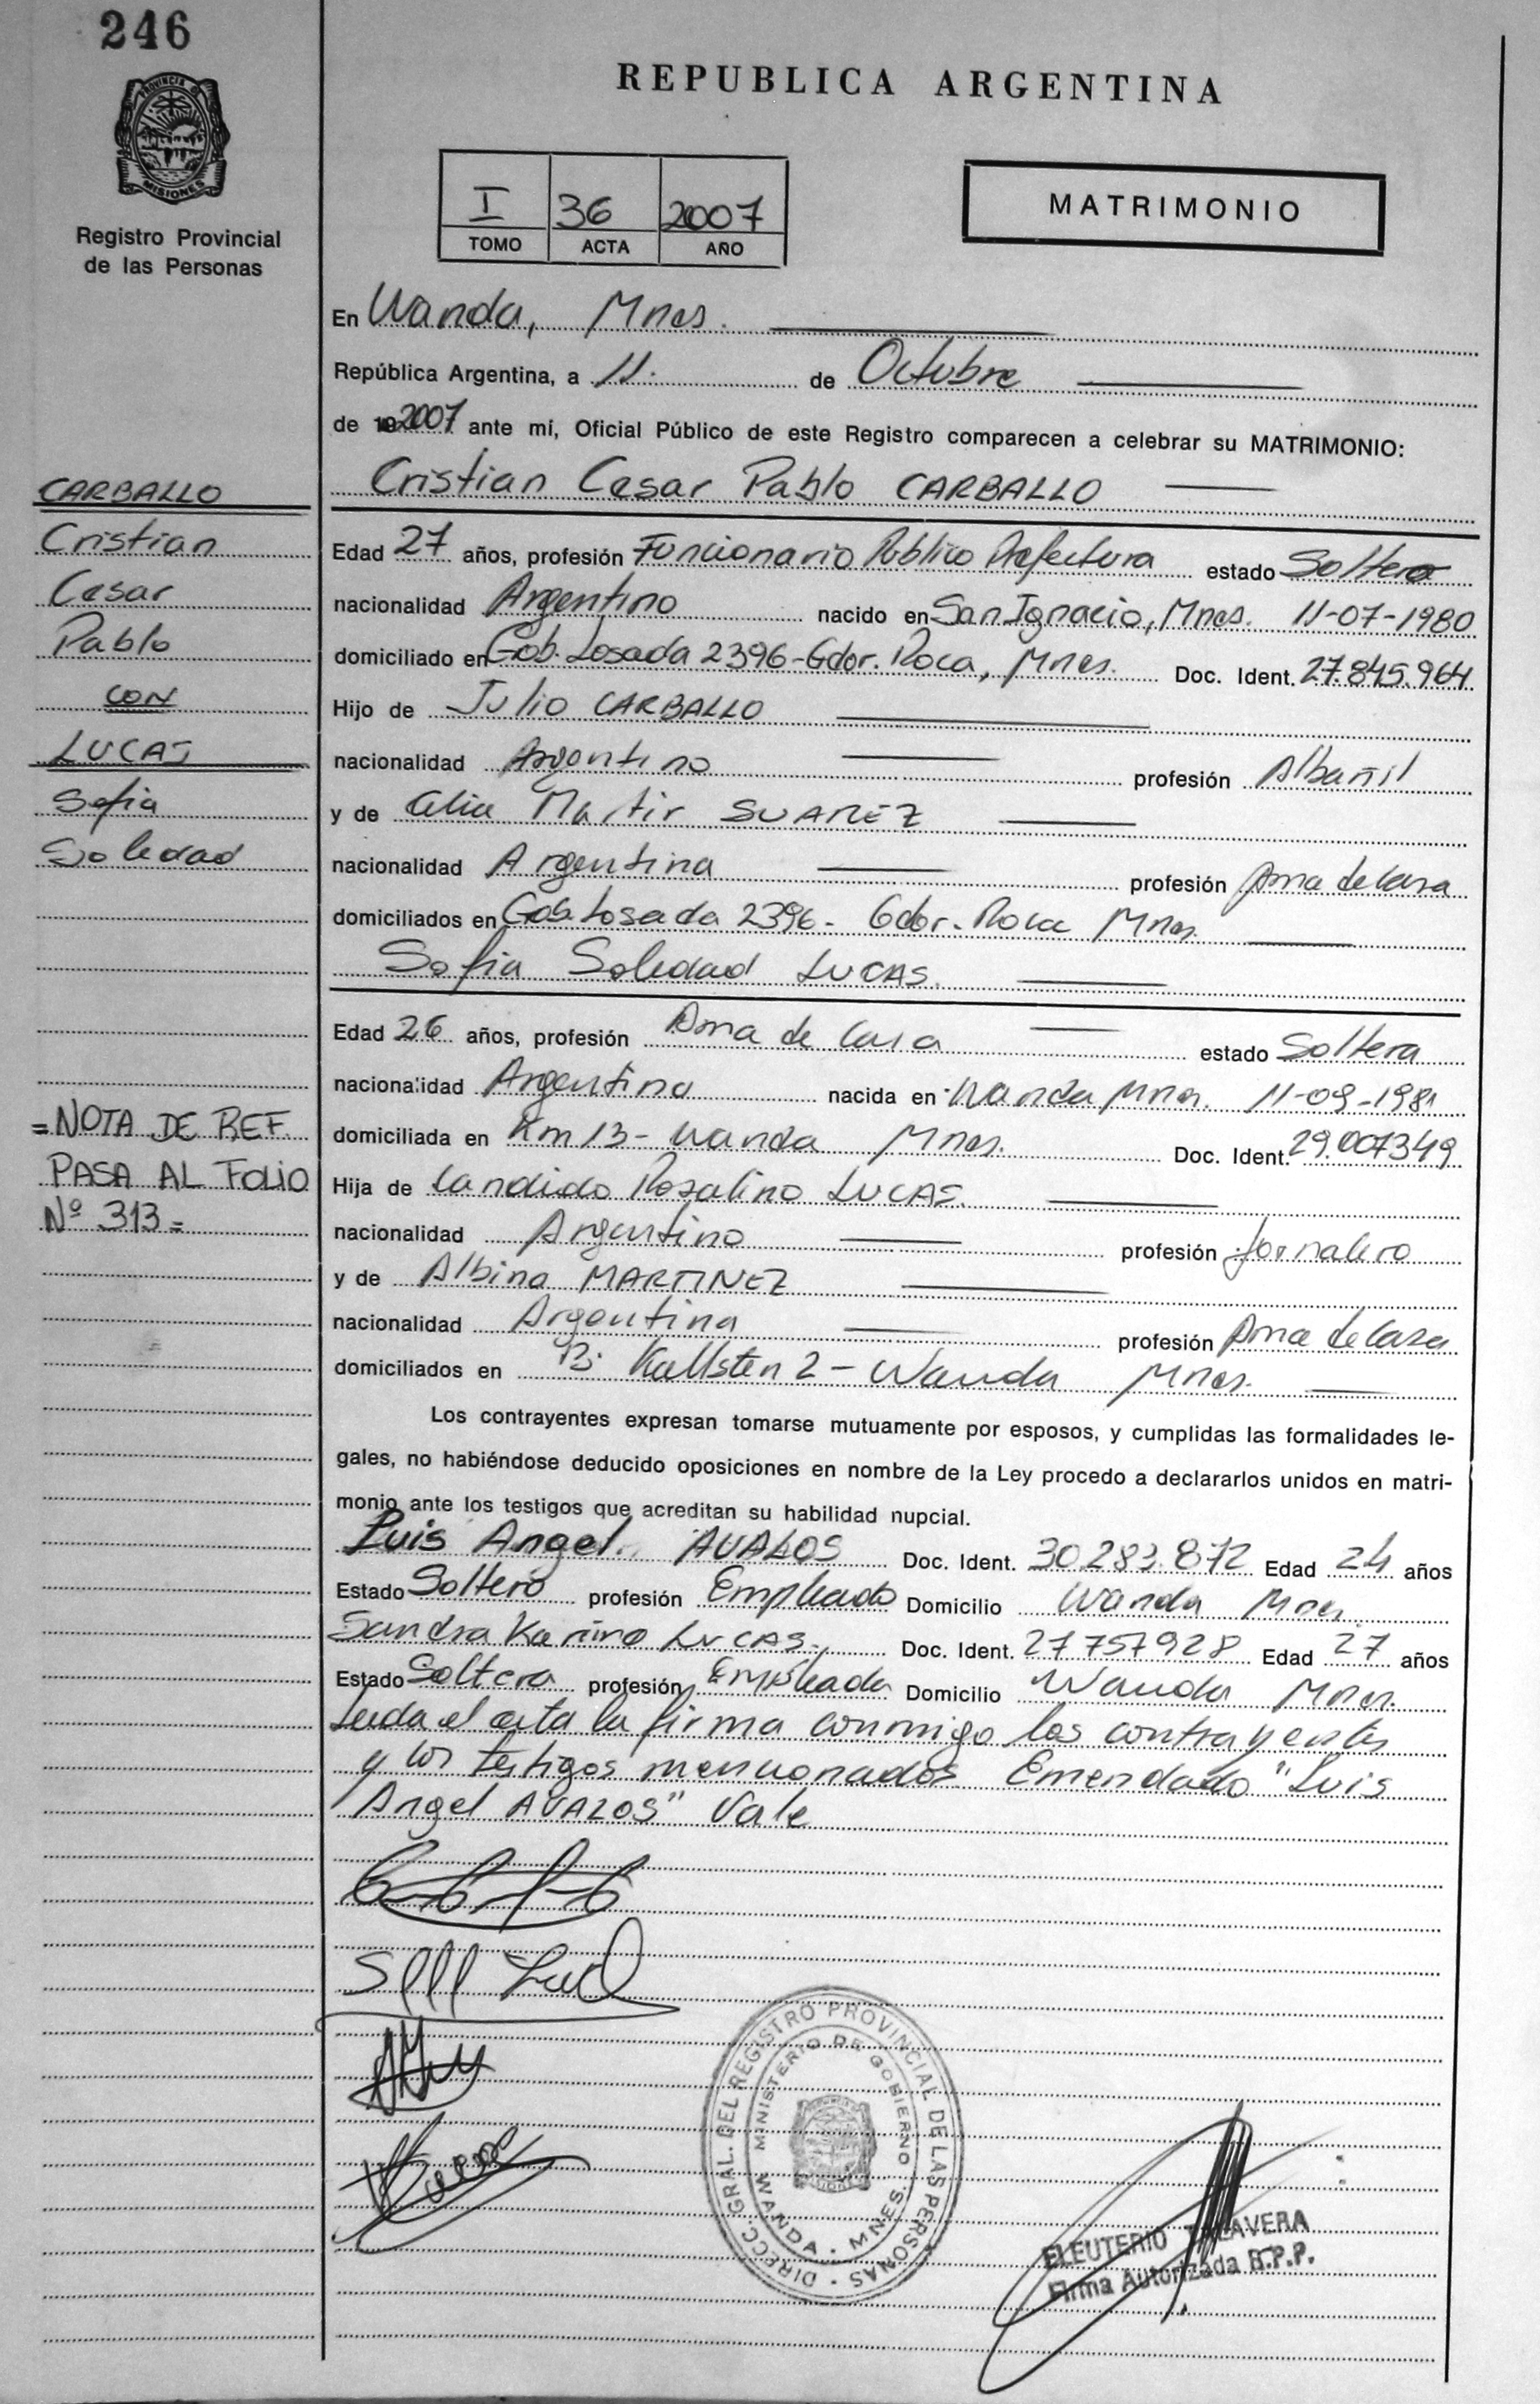 246
PROVINCIA DE
MISIONES
Registro Provincial
de las Personas
REPUBLICA ARGENTINA
I 36 2007
TOMO ACTA AÑO
MATRIMONIO
En Wanda, Mnes.
República Argentina, a 11. de Octubre
de 2007 ante mí, Oficial Público de este Registro comparecen a celebrar su MATRIMONIO:
Cristian Cesar Pablo CARBALLO
Edad 27 años, profesión Funcionario Publico Prefectura estado Soltero
nacionalidad Argentino nacido en San Ignacio, Mnes. 11-07-1980
domiciliado en Gob. Losada 2396-Gdor. Roca, Mnes. Doc. Ident. 27.845.964
Hijo de Julio CARBALLO
nacionalidad Argentino profesión Albañil
y de Celia Martir SUAREZ
nacionalidad Argentina profesión Ama de Casa
domiciliados en Gob. Losada 2396- Gdor. Roca Mnes.
Sofia Soledad LUCAS.
Edad 26 años, profesión Ama de Casa estado Soltera
nacionalidad Argentina nacida en Wanda Mnes. 11-09-1981
domiciliada en Km 13- Wanda Mnes. Doc. Ident. 29.007349
Hija de Candido Rosalino LUCAS.
nacionalidad Argentino profesión Jornalero
y de Albina MARTINEZ
nacionalidad Argentina profesión Ama de Casa
domiciliados en B. Kallsten 2 - Wanda Mnes.
Los contrayentes expresan tomarse mutuamente por esposos, y cumplidas las formalidades le-
gales, no habiéndose deducido oposiciones en nombre de la Ley procedo a declararlos unidos en matri-
monio ante los testigos que acreditan su habilidad nupcial.
Luis Angel AVALOS Doc. Ident. 30.283.872 Edad 24 años
Estado Soltero profesión Empleado Domicilio Wanda Mnes.
Sandra Karina LUCAS. Doc. Ident. 27757928 Edad 27 años
Estado Soltera profesión Empleada Domicilio Wanda Mnes.
Leida el acta la firma conmigo los contrayentes
y los testigos mencionados Emendado "Luis
Angel AVALOS" Vale
CARBALLO
Cristian
Cesar
Pablo
CON
LUCAS
Sofia
Soledad
=NOTA DE REF.
PASA AL FOLIO
Nº 313=
DIRECC. GRAL. DEL REGISTRO PROVINCIAL DE LAS PERSONAS
MINISTERIO DE GOBIERNO
WANDA - MNES.
ELEUTERIO TALAVERA
Firma Autorizada R.P.P.